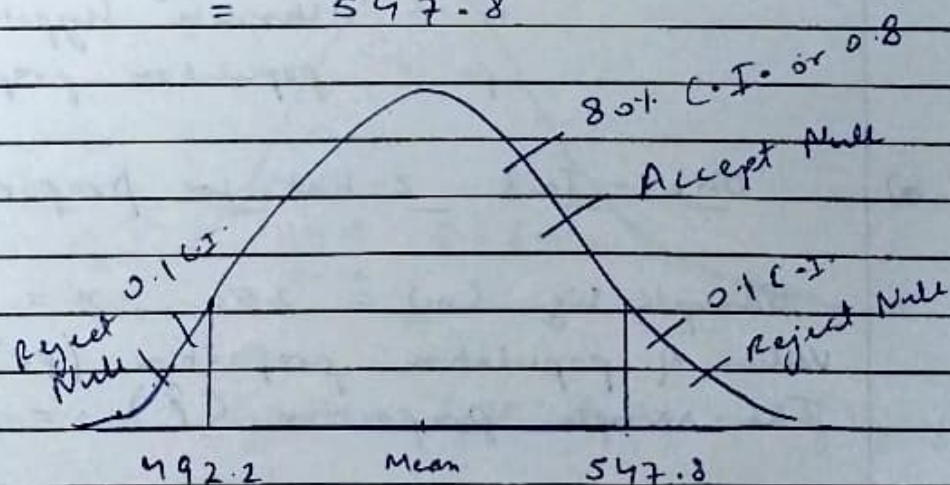 = 547.8
80% C.I. or 0.8
Accept Null
0.1 C.I.
Reject
Null
0.1 C.I.
Reject Null
492.2 Mean 547.8